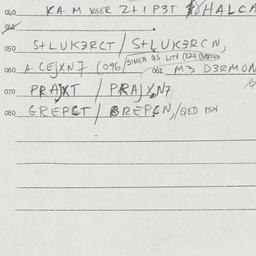 040 KA M VOSER Z+IP3T HALCA
050 S+LUK3RCT / S+LUK3RCN,
060 A CEJXN7 (096/
061 M3 D3RMON
070 PRAJXT / PRAJXN7
080 GREPCT / GREPCN, /QED ISN